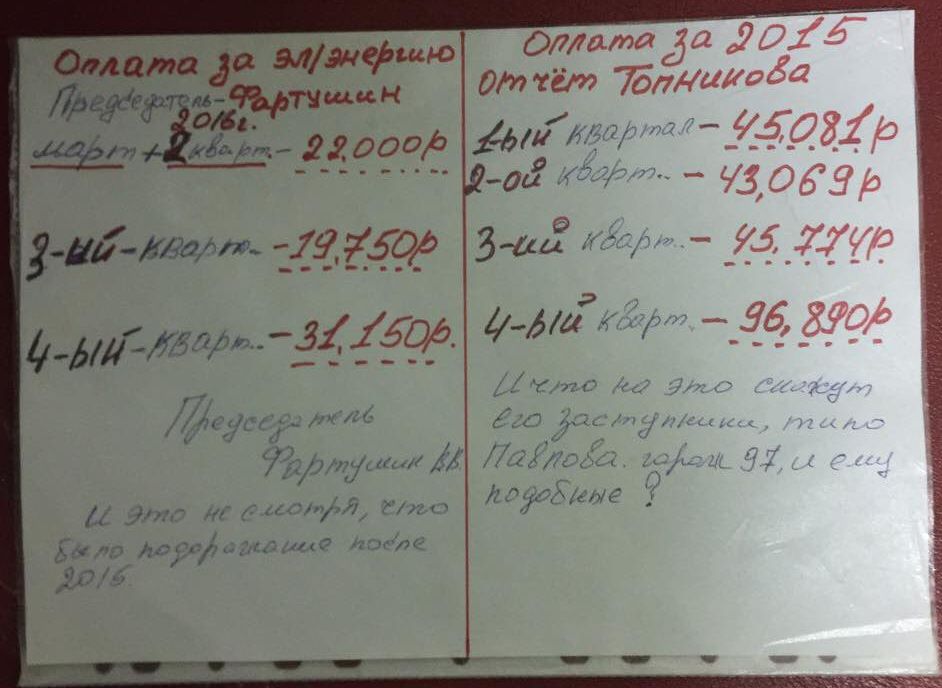 Оплата за эл/энергию
Председатель-Фартушин
2016г.
март + 2 кварт. - 22.000р
3-ий - кварт. - 19,750р
4-ый - кварт.. - 31,150р.
Председатель
Фартушин В.В.
И это не смотря, что
было подорожание после
2015.
Оплата за 2015
отчёт Топникова
1-ый квартал - 45,081р
2-ой кварт.. - 43,069р
3-ий кварт.. - 45.774р
4-ый кварт. - 96,890р
И что на это скажут
его заступники, типо
Павлова. гараж 97, и ему
подобные?